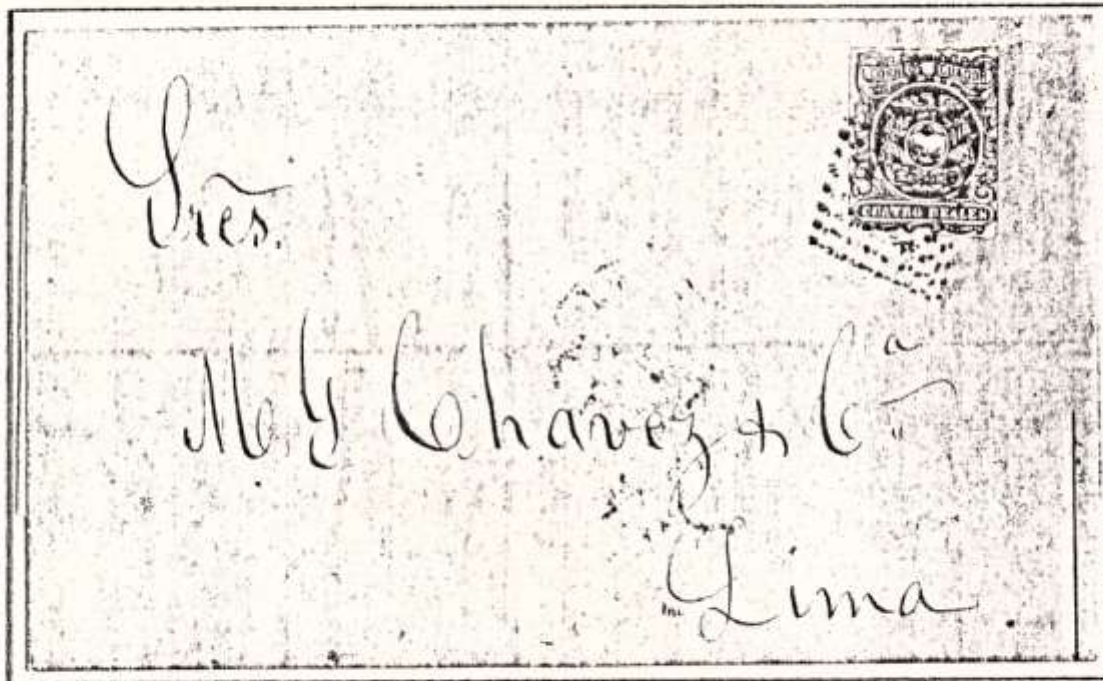 CUATRO REALES
Sres.
M. Y Chavez & Cª
Lima